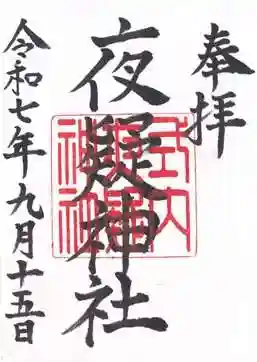 奉拝
夜疑神社
令和七年九月十五日
式内
夜疑神社